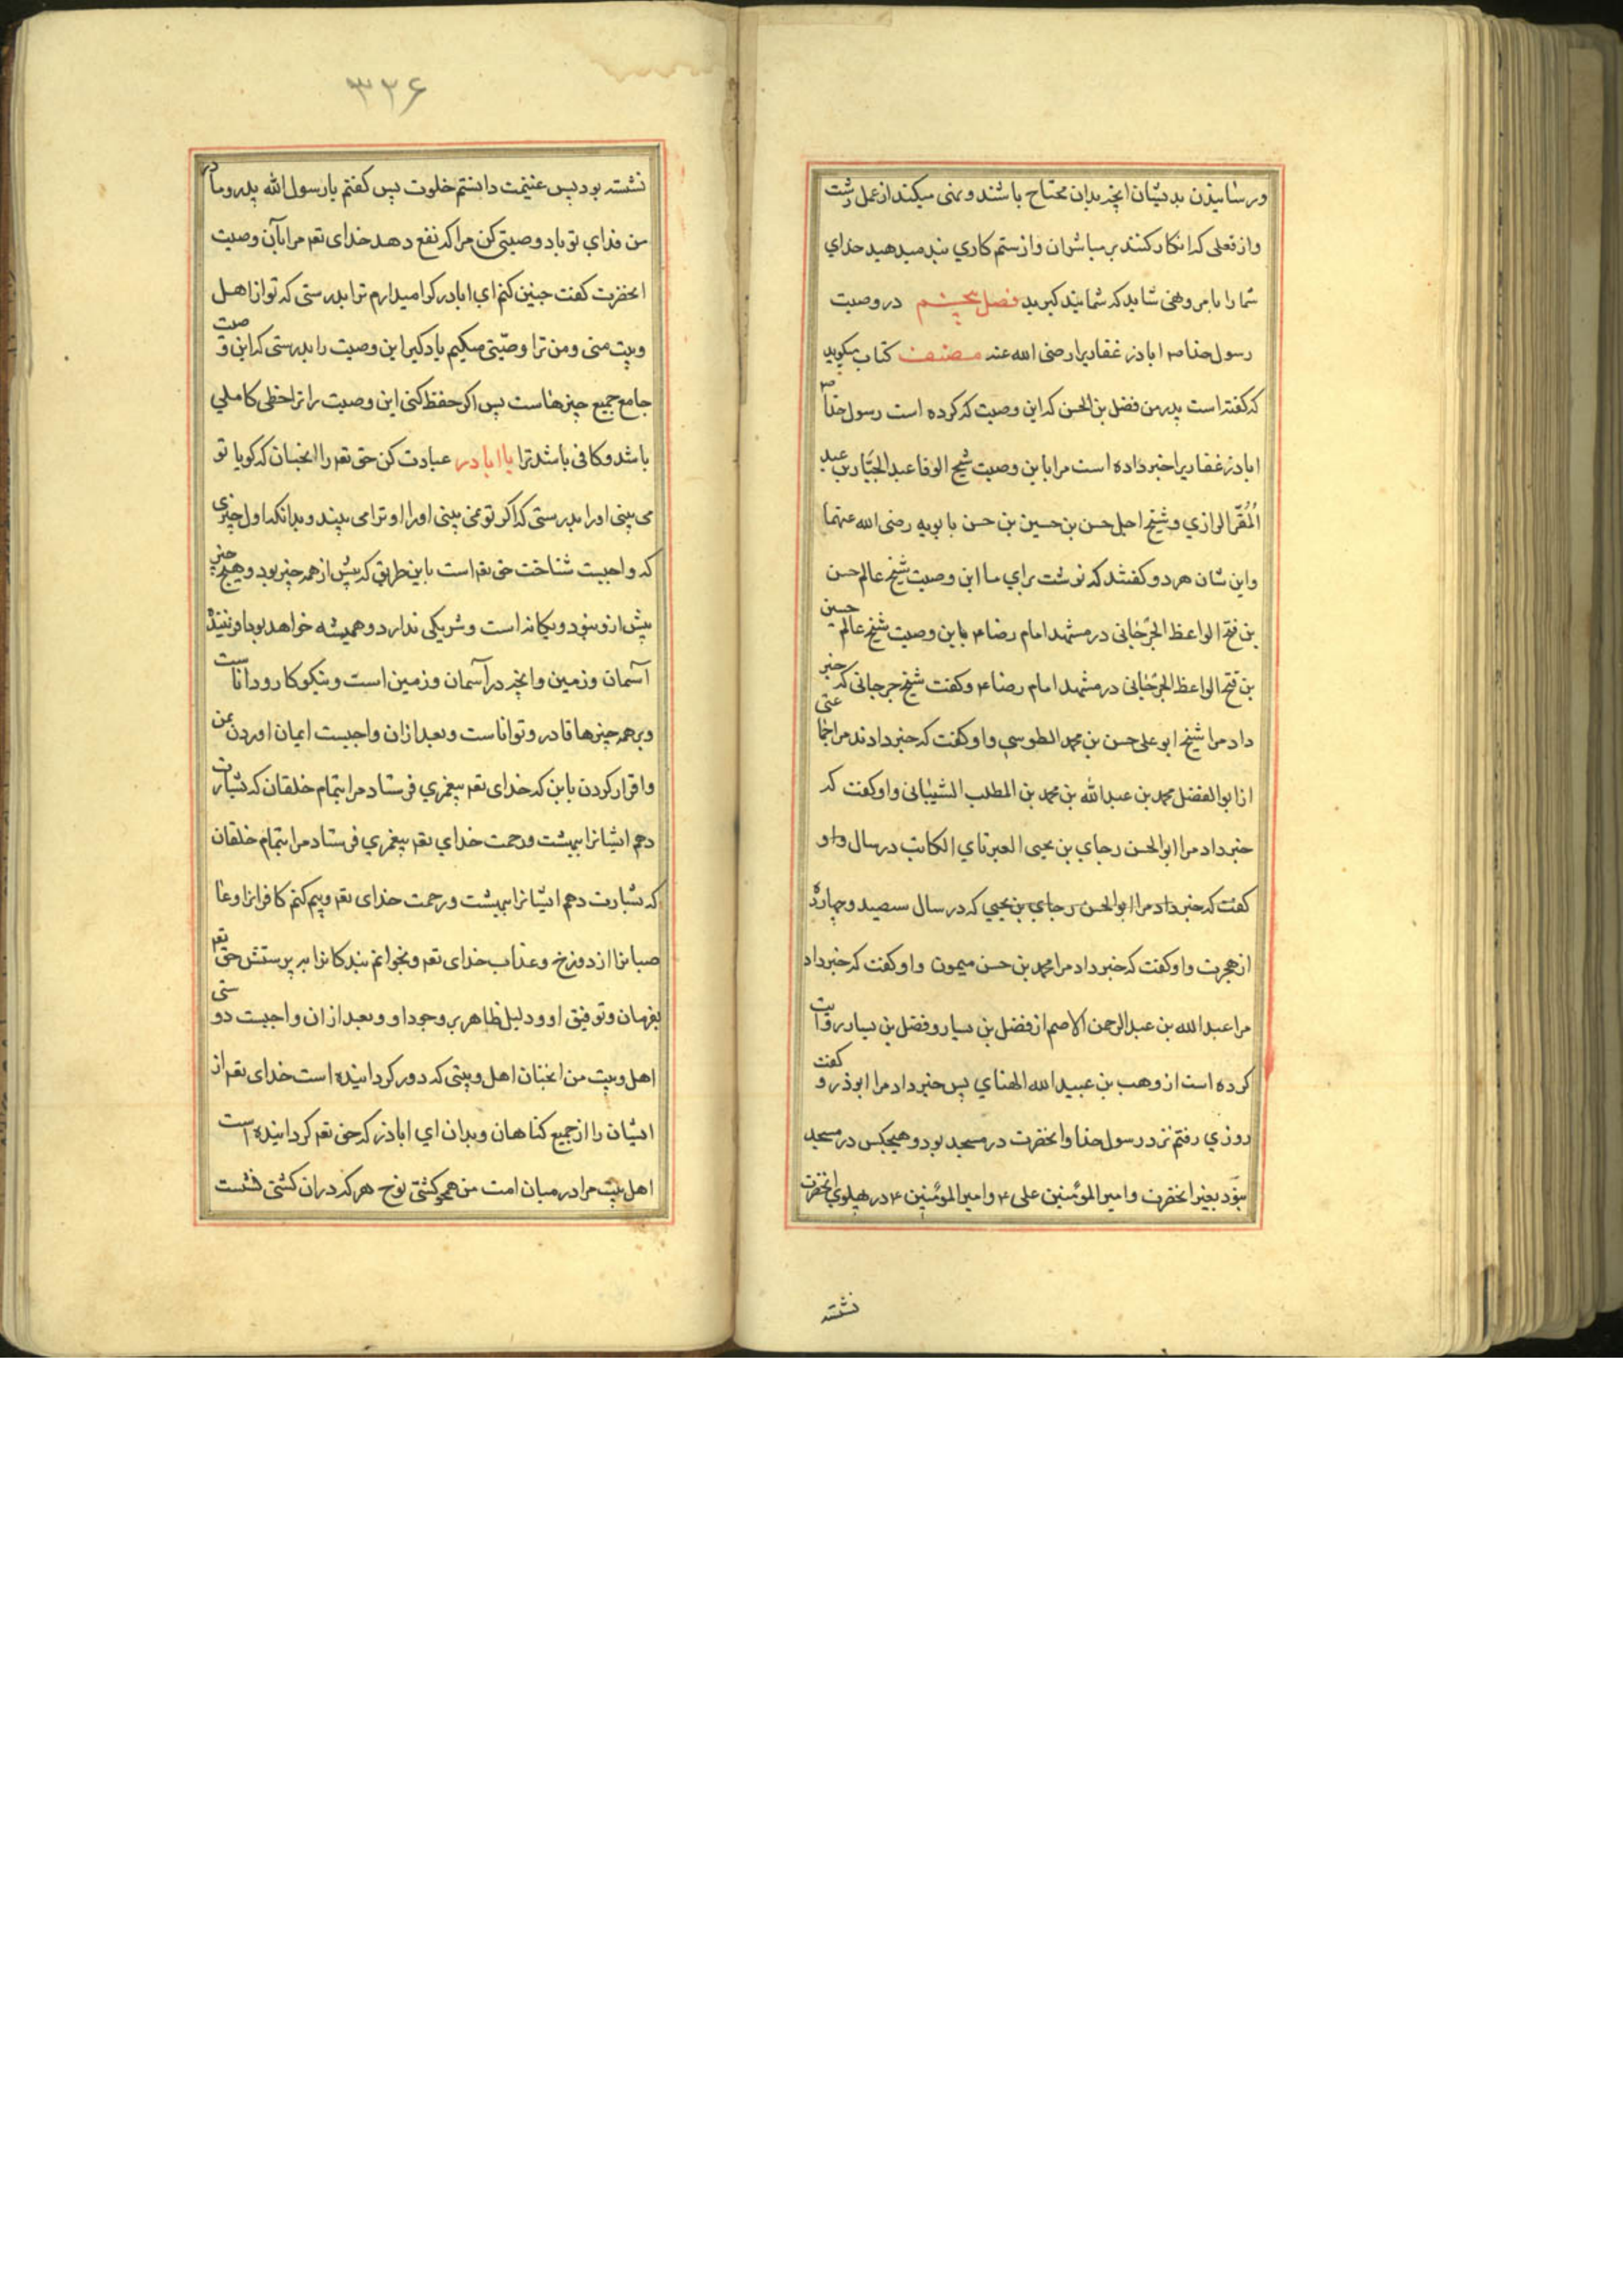 ورسانیدن بدیشان انچه بدان محتاج باشند و نهی میکند از عمل زشت
و از فعلی که انکار کنند بر مباشران و از ستم کاری پند میدهید خدای
شما را بامر و نهی شاید که شما پند کیرید فصل پنجم در وصیت
رسول خدا ص اباذر غفاریرا رضی الله عنه مصنف کتاب میکوید
که کفته است پدر من فضل بن الحسن که این وصیت که کرده است رسول خدا ص
اباذر غفاریرا خبر داده است مرا باین وصیت شیخ الوفا عبد الجبار بن عبد
المُقرّ الرازي و شیخ اجل حسن بن حسین بن حسن بابویه رضی الله عنهما
و این شان هر دو کفتند که نوشت براي ما این وصیت شیخ عالم حسن
بن فتح الواعظ الجرجانی در مشهد امام رضا ع باین وصیت شیخ عالم حسین
بن فتح الواعظ الجرجانی در مشهد امام رضا ع و کفت شیخ جرجانی که خبر
داد مرا شیخ ابو علی حسن بن محمد الطوسي و او کفت که خبر دادند مرا جماعتی
از ابو الفضل محمد بن عبد الله بن محمد بن المطلب الشیبانی و او کفت که
خبر داد مرا ابو الحسن رجاي بن یحیی العبرتاي الکاتب در سال و او
کفت که خبر داد مرا ابو الحسن رجاي بن یحیي که در سال سیصد و چهارده
از هجرت و او کفت که خبر داد مرا محمد بن حسن میمون و او کفت که خبر داد
مرا عبد الله بن عبد الرحمن الاصم از فضل بن یسار و فضل بن یسار روایت
کرده است از وهب بن عبید الله الهناي پس خبر داد مرا ابوذر و کفت
روزي رفتم نزد رسول خدا و انحضرت در مسجد بود و هیچکس در مسجد
نبود بغیر انحضرت و امیر المؤمنین علی ع و امیر المؤمنین ع در پهلوي انحضرت
نشسته
۳۲۶
نشسته بود پس غنیمت دانستم خلوت پس کفتم یا رسول الله پدر و مادر
من فداي تو باد وصیتی کن مرا که نفع دهد خدای تعم مرا بآن وصیت
انحضرت کفت چنین کنم اي اباذر کرامیدارم ترا بدرستی که تو از اهل
وبیت منی و من ترا وصیّتی میکنم یاد کیر این وصیت را بدرستی که این وصیت
جامع جمیع چیزهاست پس اکر حفظ کنی این وصیت را ترا حظی کاملي
باشد و کافی باشد ترا یا اباذر عبادت کن حق تعم را انچنان که کویا تو
می بینی او را بدرستی که اکر تو نمی بینی او را او ترا می بیند و بدانکه اول چیزی
که واجبست شناخت حق تعم است باین طریق که پیش از همه چیز بود و هیچ چیز
پیش از و نبود و یکانه است و شریکی ندارد و همیشه خواهد بود
آسمان و زمین و انچه در آسمان و زمین است و نیکو کار و داناست
و بر همه چیزها قادر و تواناست و بعد از ان واجبست ایمان اوردن بمن
و اقرار کردن باین که خدای تعم پیغمبري فرستاد مرا بتمام خلقان که بشارت
دهم ایشانرا ببهشت و رحمت خداي تعم پیغمبري فرستاد مرا بتمام خلقان
که بشارت دهم ایشانرا ببهشت و رحمت خدای تعم و بیم کنم کافرانرا و عا
صیانرا از دوزخ و عذاب خدای تعم و بخوانم بندکانرا به پرستش حق تعم
بفرمان و توفیق او و دلیل ظاهر بر وجود او و بعد از ان واجبست دوستی
اهل وبیت من انچنان اهل وبیتی که دور کردانیده است خدای تعم از
ایشان را از جمیع کناهان و بدان اي اباذر که حق تعم کردانیده است
اهل بیت مرا در میان امت من همچو کشتی نوح هر که در ان کشتی نشست